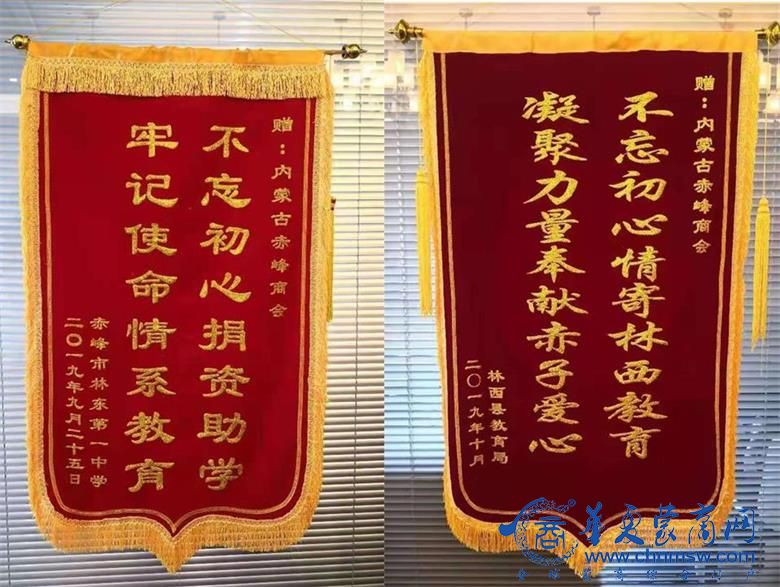 赠：内蒙古赤峰商会
不忘初心捐资助学
牢记使命情系教育
赤峰市林东第一中学
二〇一九年九月二十五日
赠：内蒙古赤峰商会
不忘初心情寄林西教育
凝聚力量奉献赤子爱心
林西县教育局
二〇一九年十月
商
华夏蒙商网
www.chumsw.com